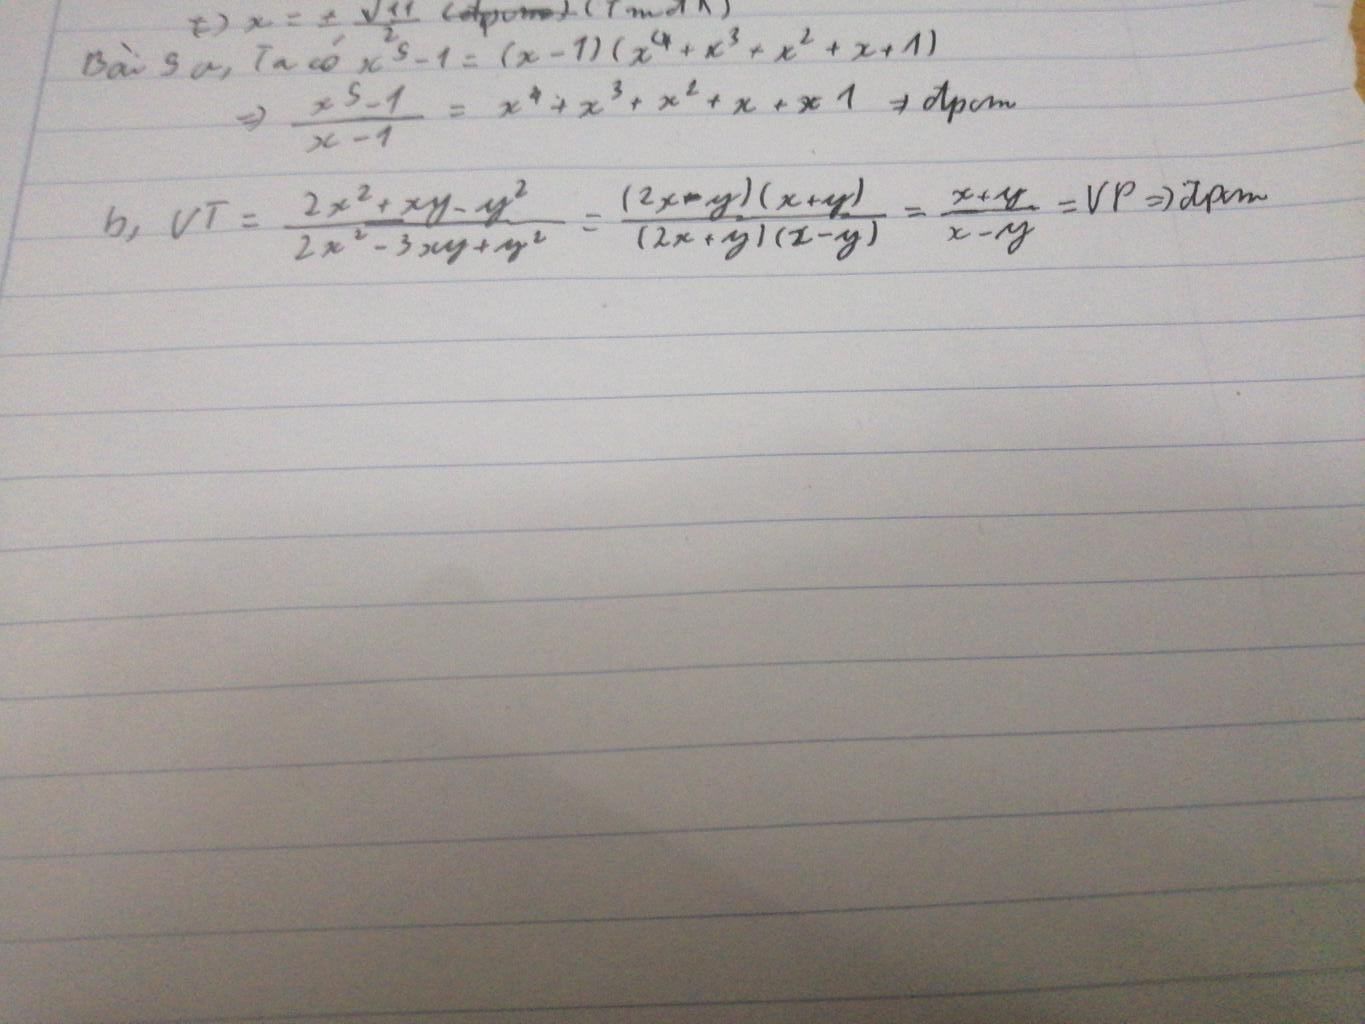 <=> x = ± √11/2 (Tmđk)
Bài 5 a, Ta có x⁵ - 1 = (x - 1)(x⁴ + x³ + x² + x + 1)
=> (x⁵ - 1)/(x - 1) = x⁴ + x³ + x² + x + 1 => đpcm
b, VT = (2x² + xy - y²)/(2x² - 3xy + y²) = (2x - y)(x + y)/(2x + y)(x - y) = (x + y)/(x - y) = VP => đpcm